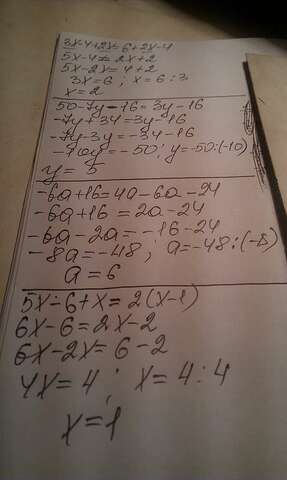 3x-4+2x=6+2x-4
5x-4=2x+2
5x-2x=4+2
3x=6; x=6:3
x=2
50-7y-16=3y-16
-7y+34=3y-16
-7y-3y=-34-16
-10y=-50; y=-50:(-10)
y=5
-6a+16=4a-6a-24
-6a+16=2a-24
-6a-2a=-16-24
-8a=-48; a=-48:(-8)
a=6
5x-6+x=2(x-1)
6x-6=2x-2
6x-2x=6-2
4x=4; x=4:4
x=1